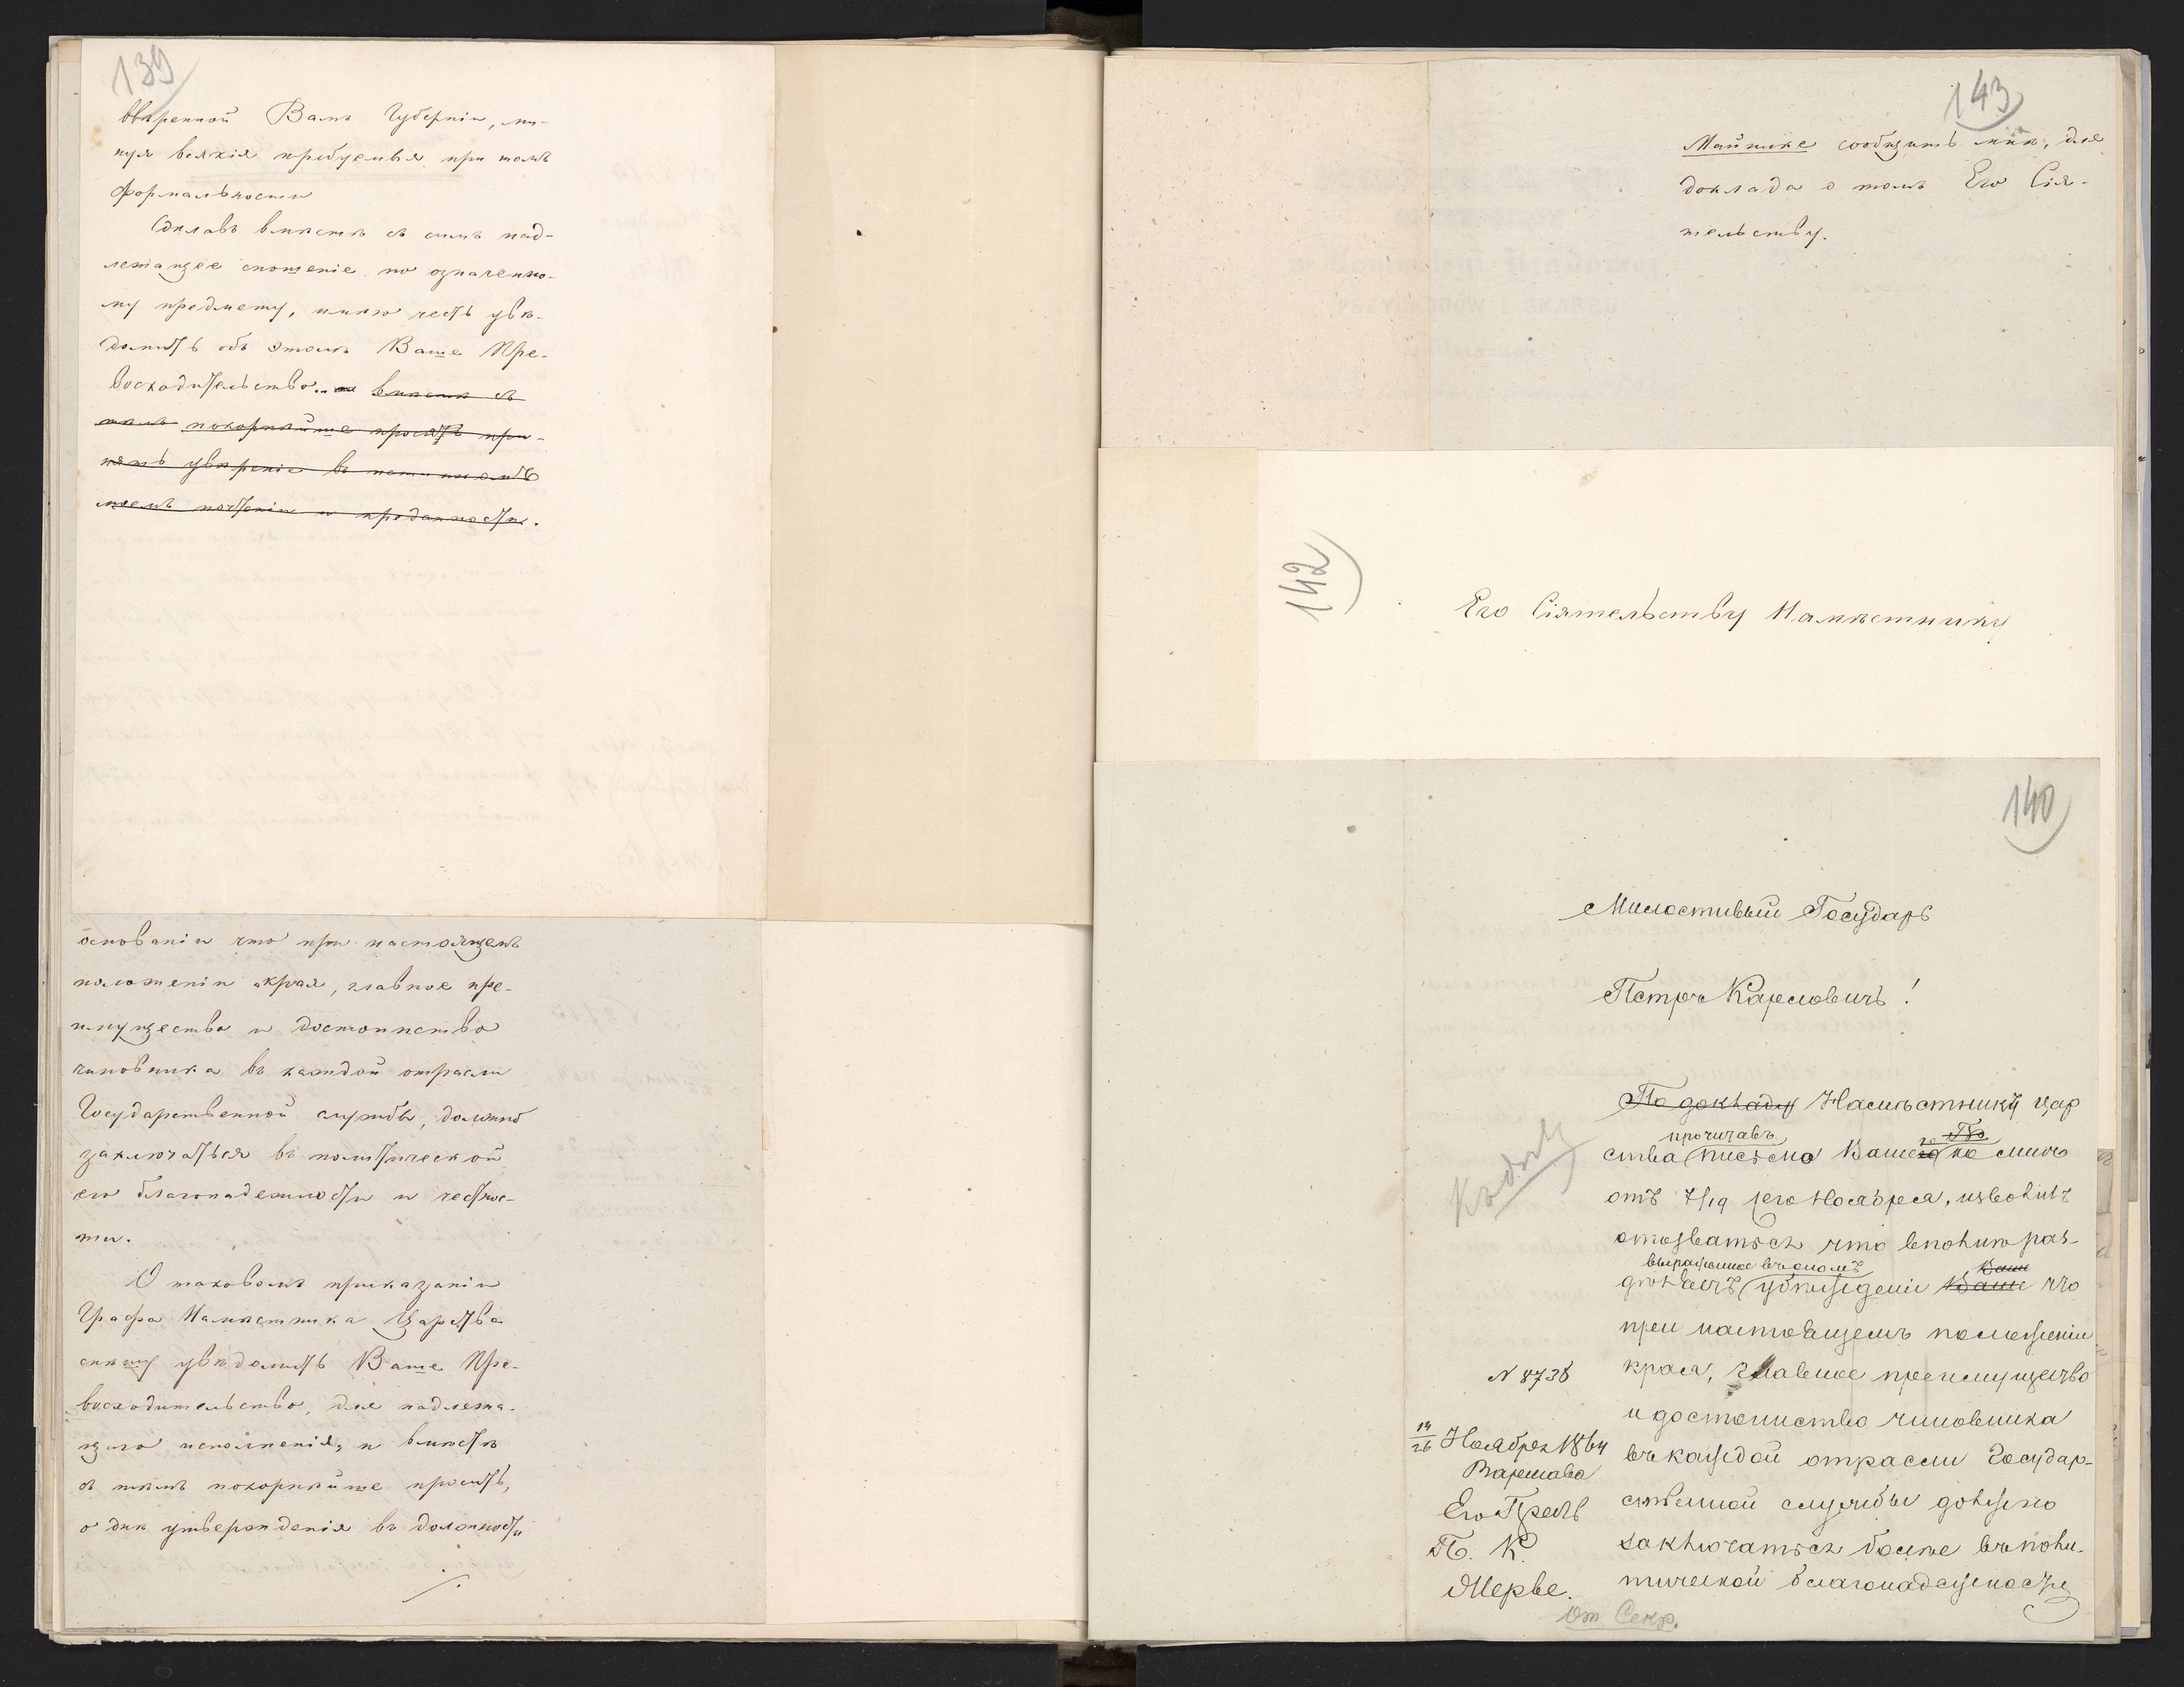 139
вверенной Вамъ Губерніи, ми-
нуя всякія требуемыя при томъ
формальности
Сдѣлавъ вмѣстѣ съ симъ над-
лежащее сношеніе по означенно-
му предмету, имѣю честь увѣ-
домить объ этомъ Ваше Пре-
восходительство. вмѣстѣ съ
тѣмъ покорнѣйше просить при-
нять увѣреніе въ истинномъ
моемъ почтеніи и преданности.
основаніи что при настоящемъ
положеніи края, главное пре-
имущество и достоинство
чиновника въ каждой отрасли
Государственной службы, должно
заключаться въ политической
его благонадежности и честнос-
ти.
О таковомъ приказаніи
Графа Намѣстника Царства
спѣшу увѣдомить Ваше Пре-
восходительство, для надлежа-
щаго исполненія, и вмѣстѣ
съ тѣмъ покорнѣйше просить,
о для утвержденія въ должности
143
Майшке сообщить мнѣ, для
доклада о томъ Его Сія-
тельству.
142
Его Сіятельству Намѣстнику
140
Милостивый Государь
Петръ Карловичъ!
По докладу Намѣстнику Цар
прочитавъ
ства письмо Ваше ко мнѣ
отъ 7/19 сего Ноября, изволилъ
отозваться что вполнѣ раз-
выраженное въ ономъ Ваше
дѣляетъ убѣжденіе Ваше что
при настоящемъ положеніи
края, главное преимущество
и достоинство чиновника
въ каждой отрасли Государ-
ственной службы должно
заключаться болѣе въ поли-
тической благонадежности
N 8738
14/26 Ноября 1864
Варшава
Его Прев
П. К.
Мерве.
От Секр.